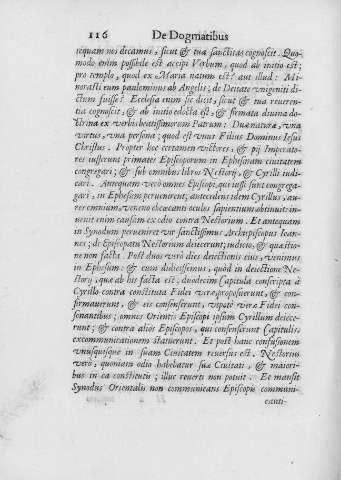 116 De Dogmatibus
tequam nos dicamus, sicut & tua sanctitas cognoscit. Quo-
modo enim possibile est accipi Verbum, quod ab initio est;
pro templo, quod ex Maria natum est? aut illud: Mi-
norasti eum pauleminus ab Angelis; de Deitate vnigeniti di-
ctum fuisse? Ecclesia enim sic dicit, sicut & tua reueren-
tia cognoscit, & ab initio edocta est, & firmata diuina do-
ctrina ex verbis beatissimorum Patrum: Duæ naturæ, vna
virtus, vna persona; quod est vnus Filius Dominus Iesus
Christus. Propter hoc certamen victores, & pij Imperato-
res iusserunt primates Episcoporum in Ephesinam ciuitatem
congregari; & sub omnibus libros Nectorij, & Cyrilli iudi-
cari. Antequam verò omnes Episcopi, qui iussi sunt congrega-
gari, in Ephesum peruenirent, antecedens idem Cyrillus, au-
res omnium, veneno obcæcanti oculos sapientium obtinuit: in-
uenit enim causam ex odio contra Nectorium. Et antequam
in Synodum perueniret vir sanctissimus Archiepiscopus Ioan-
nes; de Episcopatu Nectorium deiecerunt; iudicio, & quæstio-
ne non facta. Post duos verò dies deiectionis eius, venimus
in Ephesum: & cum didicessimus, quòd in deiectione Ne-
ctorij, quæ ab his facta est; duodecim Capitula conscripta à
Cyrillo contra constituta Fidei veræ proposuerunt, & con-
firmauerunt, & eis consenserunt, vepotè veræ Fidei con-
sonantibus; omnes Orientis Episcopi ipsum Cyrillum deiece-
runt; & contra alios Episcopos, qui consenserunt Capitulis,
excommunicationem statuerunt. Et post hanc confusionem
vnusquisque in suam Ciuitatem reuersus est. Nectorius
verò, quoniam odio habebatur suæ Ciuitati, & maiori-
bus in ea constitutis; illuc reuerti non potuit: Et mansit
Synodus Orientalis non communicans Episcopis communi-
canti-